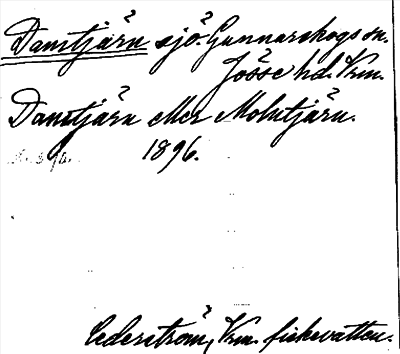 Damtjärn sjö. Gunnarskogs sn.
Jösse hd. Vrm.
Damtjärn eller Molntjärn.
1896.
Cederström, Vrm. fiskevatten.